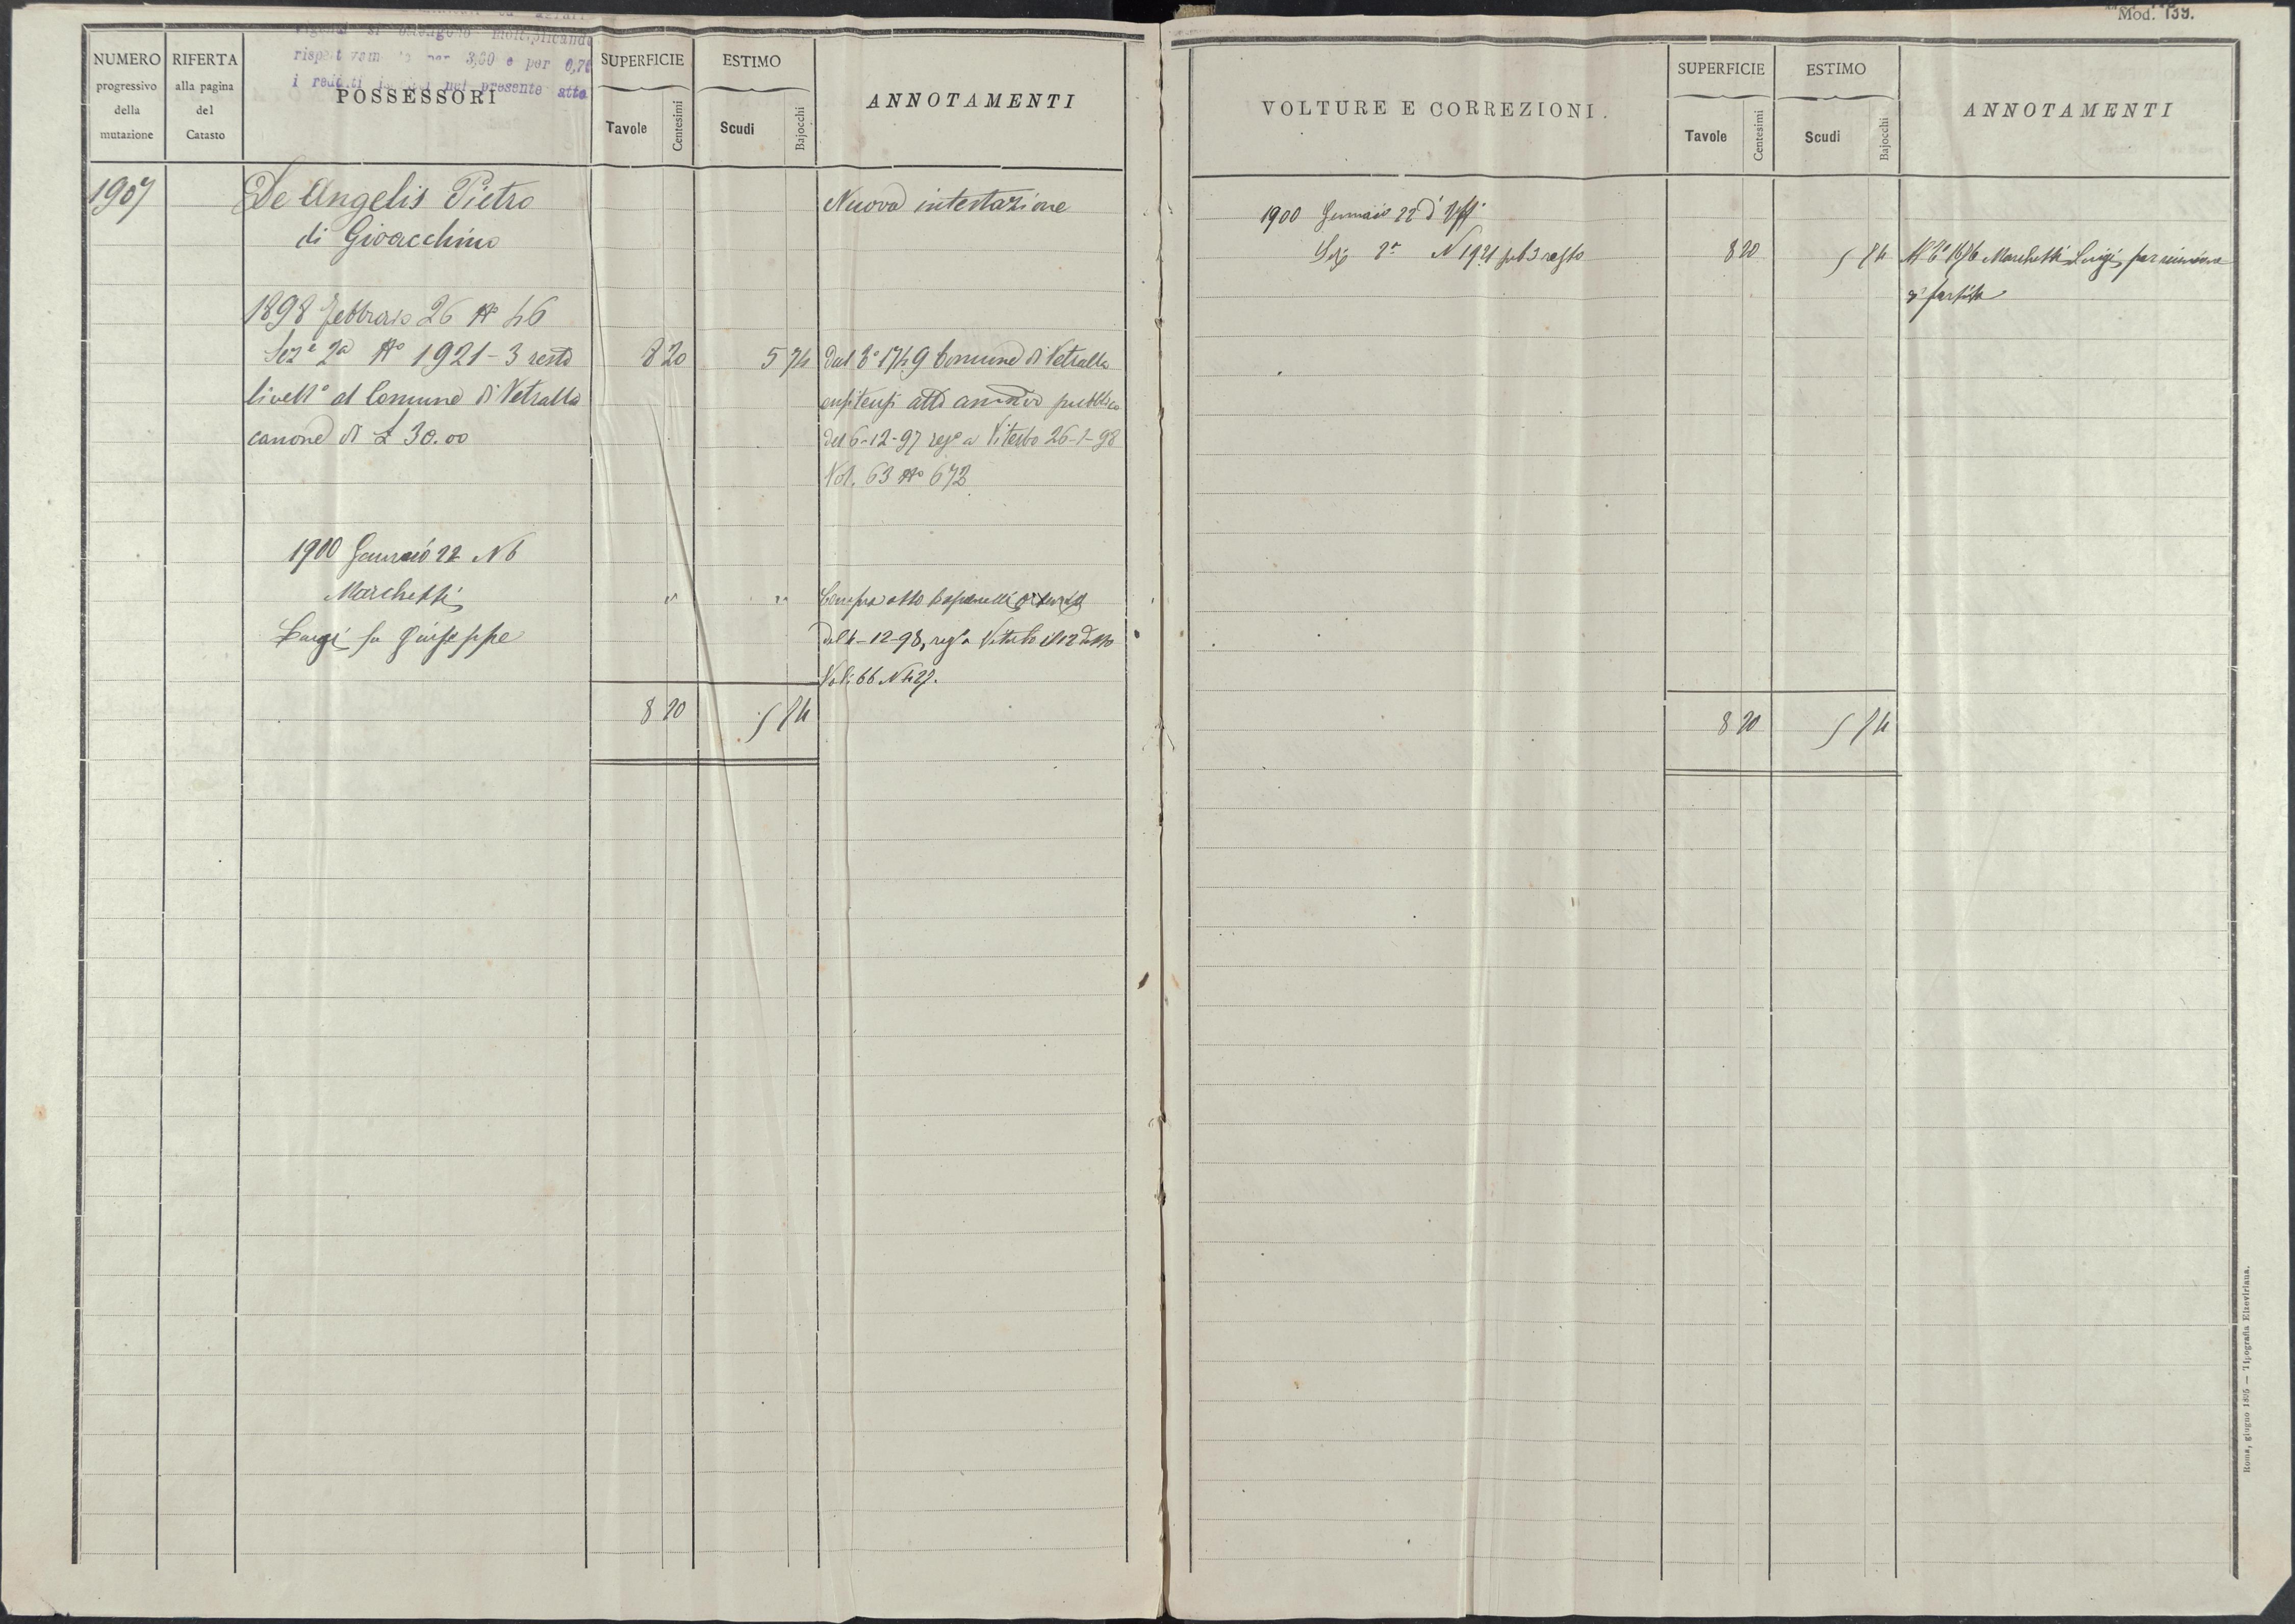 Mod. 139.
si ottengono moltiplicando
per 3,60 e per 0,7
i redditi nel presente atto
NUMERO progressivo della mutazione
RIFERTA alla pagina del Catasto
POSSESSORI
SUPERFICIE
Tavole
Centesimi
ESTIMO
Scudi
Bajocchi
ANNOTAMENTI
1907
De Angelis Pietro
Nuova intestazione
di Gioacchino
1898 Febbraio 26 No 46
Sez.e 2a No 1921-3 resto 8 20 5 74 Dal 1749 Comune di Vetralla
livell° al Comune di Vetralla enfiteusi atto pubblico
canone di £ 30.00 del 6-12-97 reg° a Viterbo 26-1-98
Vol. 63 No 672
1900 Gennaio 22 N 6
Marchetti " " Compra atto
Luigi fu Giuseppe del 4-12-98, reg° a Viterbo il 12 detto
Vol. 66 N 427.
8 20 5 74
VOLTURE E CORREZIONI.
SUPERFICIE
Tavole
Centesimi
ESTIMO
Scudi
Bajocchi
ANNOTAMENTI
1900 Gennaio 22 d'Uff°
Sez 2a N 1921 sub 3 resto 8 20 5 74 Al 1676 Marchetti Luigi per riunione
di partita
8 20 5 74
Roma, giugno 1895 — Tipografia Elzeviriana.